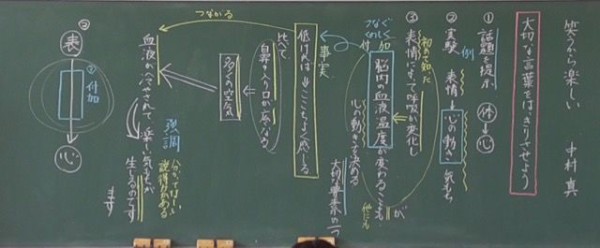 笑うから楽しい
中村 真
大切な言葉をはっきりさせよう
① 話題を提示
体→心
② 実験
例
表情→心の動き
気もち
③ 表情によって呼吸が変化し
初めて知った
脳内の血液温度が変わることも
心の動きを決める
大切な要素の一つ
つなぐ
付加
事実
低ければ
ここちよく感じる
比べて
鼻の入り口が広くなる
多くの空気
つながる
血液が冷やされて
楽しい気もちが
生じるのです
ます
強調
説得力がある
②
表
① 付加
心